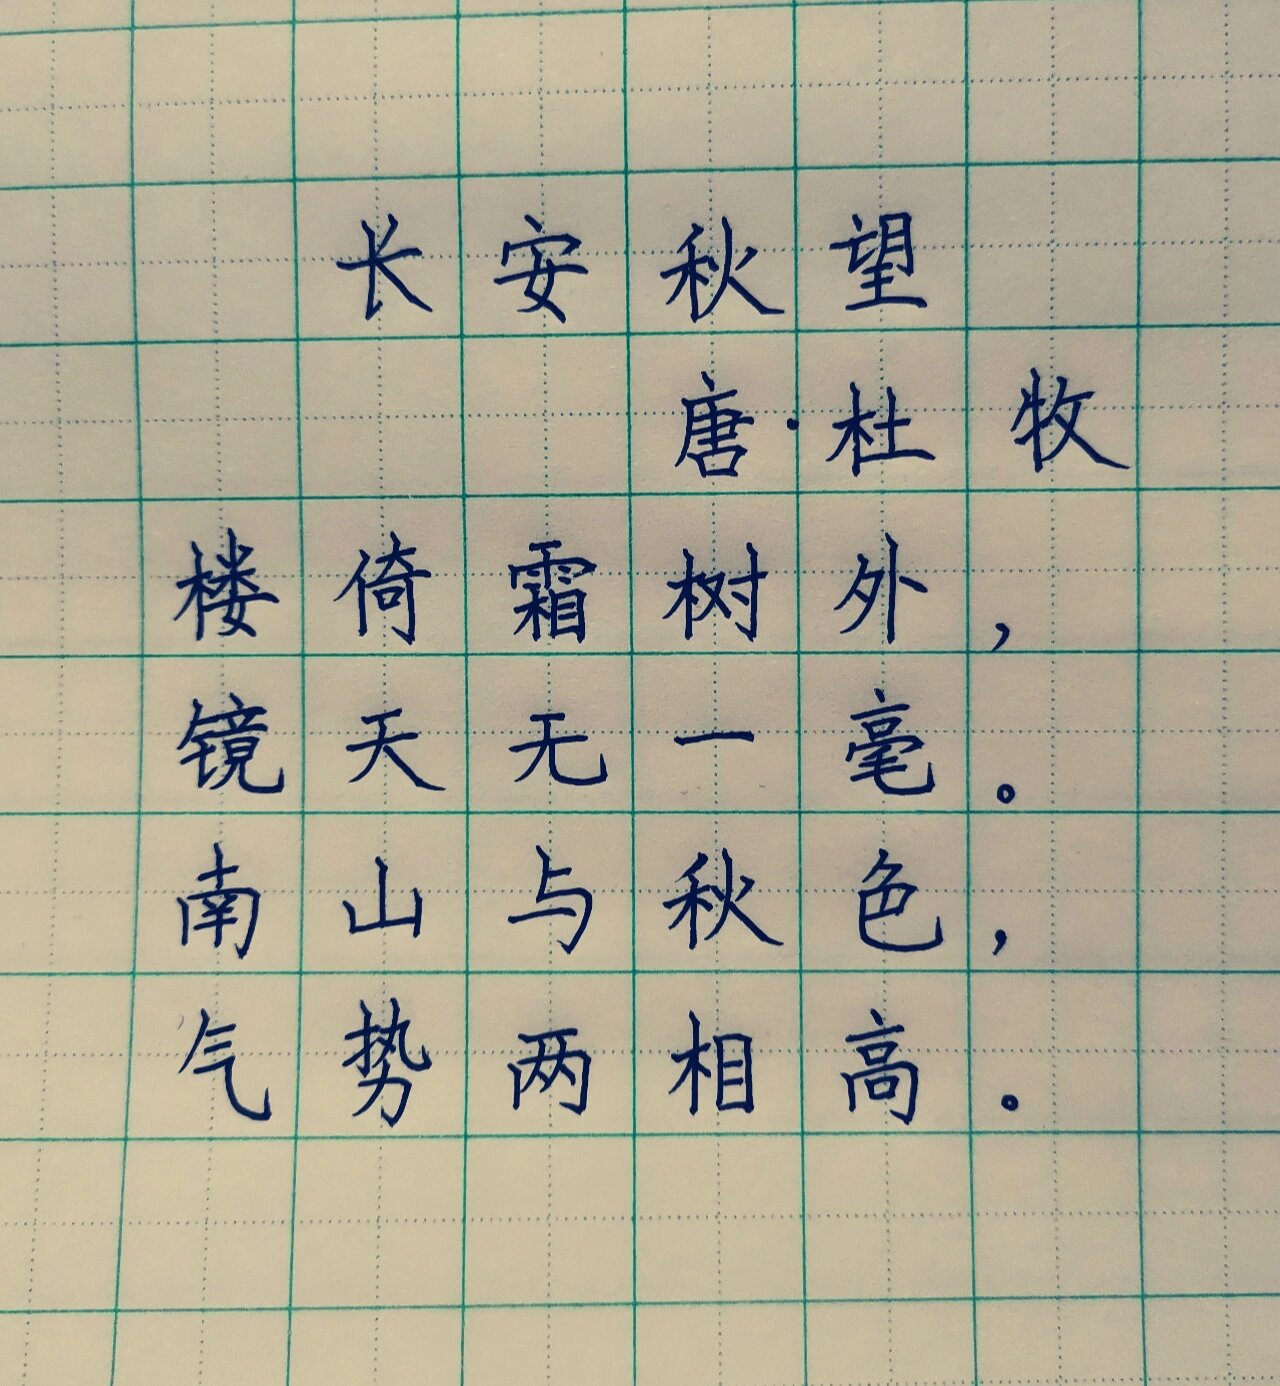 长安秋望
唐·杜牧
楼倚霜树外，
镜天无一毫。
南山与秋色，
气势两相高。